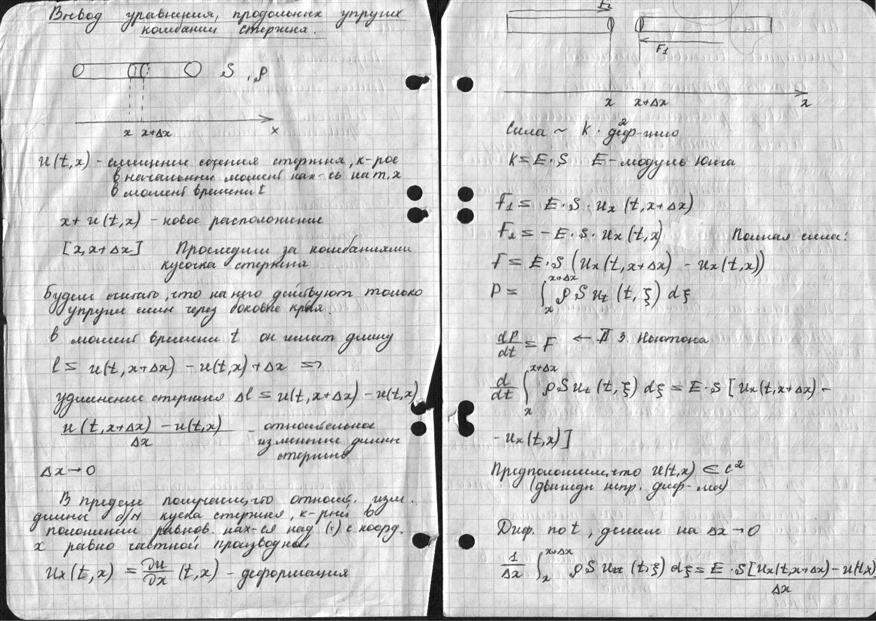 Вывод уравнения, продольных упругих
колебаний стержня.
S , ρ
x x+Δx x
u(t,x) - смещение сечения стержня, к-рое
в начальный момент нах-сь на т. x
в момент времени t
x + u(t,x) - новое расположение
[x, x+Δx] Проследим за колебаниями
кусочка стержня
Будем считать, что на него действуют только
упругие силы через боковые края.
В момент времени t он имеет длину
l = u(t, x+Δx) - u(t,x) + Δx ⇒
удлинение стержня Δl = u(t, x+Δx) - u(t,x)
u(t, x+Δx) - u(t,x) / Δx - относительное
изменение длины
стержня
Δx→0
В пределе получаем, что относ. изм.
длины б/м куска стержня, к-рый в
положении равнов. нах-ся над (·) с коорд.
x равно частной производной
u_x(t,x) = ∂u/∂x (t,x) - деформация
F₁
x x+Δx x
Сила ~ K · деф-цию
K = E·S E - модуль Юнга
F₁ = E·S·u_x(t, x+Δx)
F₂ = -E·S·u_x(t,x) Полная сила:
F = E·S (u_x(t, x+Δx) - u_x(t,x))
P = ∫_x^{x+Δx} ρ S u_t(t, ξ) dξ
dP/dt = F ← II з. Ньютона
d/dt ∫_x^{x+Δx} ρ S u_t(t, ξ) dξ = E·S [u_x(t, x+Δx) -
- u_x(t,x)]
Предположим, что u(t,x) ∈ C²
(дважды непр. диф-ма)
Диф. по t, делим на Δx→0
1/Δx ∫_x^{x+Δx} ρ S u_tt(t, ξ) dξ = E·S[u_x(t,x+Δx) - u(t,x) / Δx